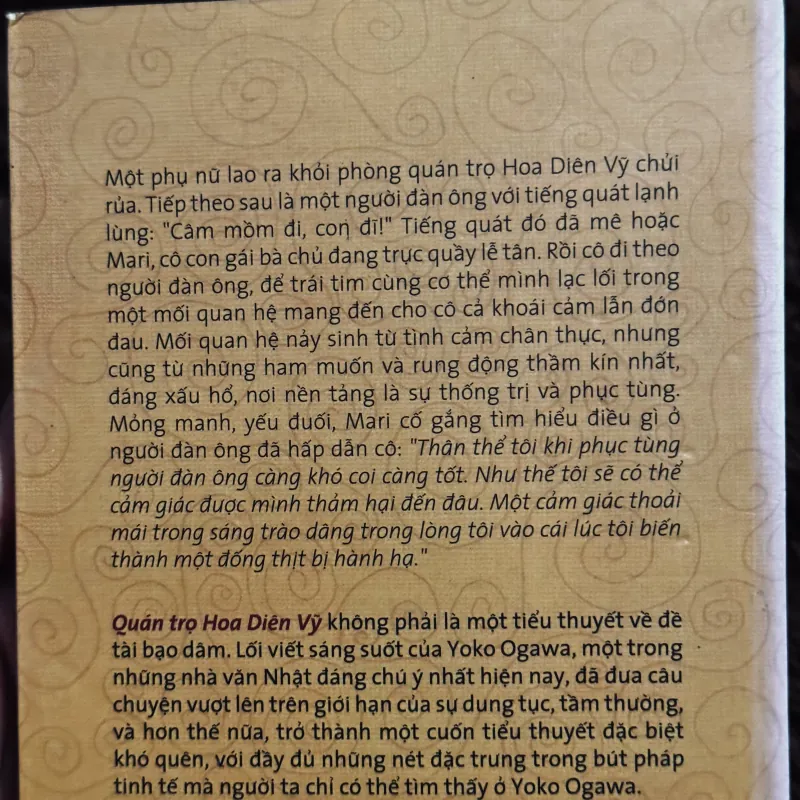 Một phụ nữ lao ra khỏi phòng quán trọ Hoa Diên Vỹ chửi
rủa. Tiếp theo sau là một người đàn ông với tiếng quát lạnh
lùng: "Câm mồm đi, con đĩ!" Tiếng quát đó đã mê hoặc
Mari, cô con gái bà chủ đang trực quầy lễ tân. Rồi cô đi theo
người đàn ông, để trái tim cùng cơ thể mình lạc lối trong
một mối quan hệ mang đến cho cô cả khoái cảm lẫn đớn
đau. Mối quan hệ nảy sinh từ tình cảm chân thực, nhưng
cũng từ những ham muốn và rung động thầm kín nhất,
đáng xấu hổ, nơi nền tảng là sự thống trị và phục tùng.
Mỏng manh, yếu đuối, Mari cố gắng tìm hiểu điều gì ở
người đàn ông đã hấp dẫn cô: "Thân thể tôi khi phục tùng
người đàn ông càng khó coi càng tốt. Như thế tôi sẽ có thể
cảm giác được mình thảm hại đến đâu. Một cảm giác thoải
mái trong sáng trào dâng trong lòng tôi vào cái lúc tôi biến
thành một đống thịt bị hành hạ."
Quán trọ Hoa Diên Vỹ không phải là một tiểu thuyết về đề
tài bạo dâm. Lối viết sáng suốt của Yoko Ogawa, một trong
những nhà văn Nhật đáng chú ý nhất hiện nay, đã đưa câu
chuyện vượt lên trên giới hạn của sự dung tục, tầm thường,
và hơn thế nữa, trở thành một cuốn tiểu thuyết đặc biệt
khó quên, với đầy đủ những nét đặc trưng trong bút pháp
tinh tế mà người ta chỉ có thể tìm thấy ở Yoko Ogawa.